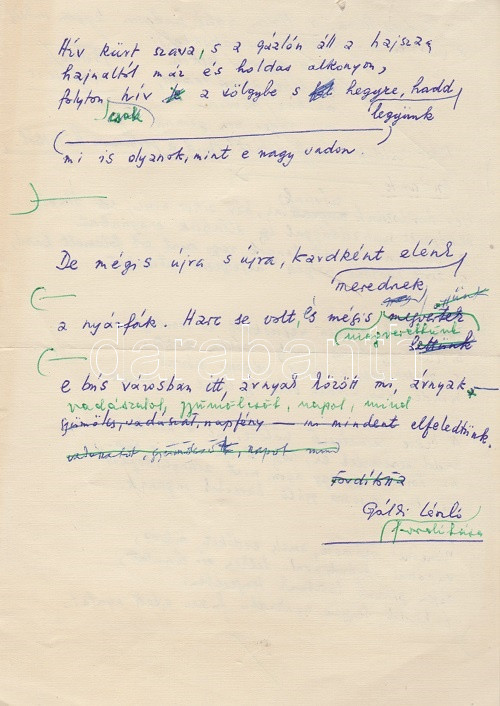 Hív kürt szava, s a gázlón áll a hajsza
hajnaltól már és holdas alkonyon,
folyton hív a völgybe s hegyre, hadd
csak legyünk
mi is olyanok, mint e nagy vadon.
De mégis újra s újra, kardként elénk
merednek
a nyárfák. Harc se volt, és mégis megvertek
megverettünk lettünk
e bús városban itt árnyak között mi, árnyak —
vadászatot, gyümölcsöt, napot, mind
gyümölcs, vadászat, napfény — mindent elfeledtünk.
vadászatot, gyümölcsöt, napot mind
fordította
Gáldi László
fordítása
darabanth